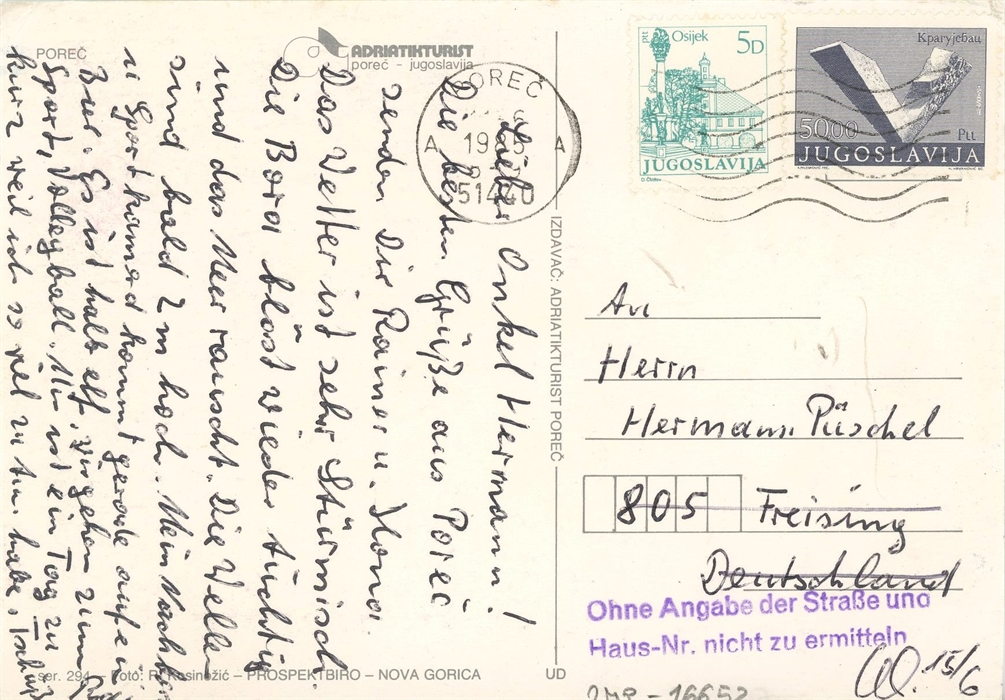 POREČ
ADRIATIKTURIST
poreč - jugoslavija
Lieber Onkel Hermann!
Die besten Grüße aus Poreč
senden Dir Rainer u. Ilona.
Das Wetter ist sehr stürmisch
Die Bora bläst wieder tüchtig
und das Meer rauscht. Die Welle
sind bald 2 m hoch. Mein Nachbar
u Sportkamerad kommt gerade aufen
Es ist halb elf. wir gehen zum
Sport, Volleyball. Mir ist ein Tag zu
kurz weil ich so viel zu tun habe. Tschüß
ser. 294 - Foto: R. Kosinožić – PROSPEKTBIRO – NOVA GORICA
UD
IZDAVAČ: ADRIATIKTURIST POREČ
POREČ
A
A
51440
ptt
Osijek
5D
JUGOSLAVIJA
Крагујевац
50.00
Ptt
JUGOSLAVIJA
An
Herrn
Hermann Püschel
805 Freising
Deutschland
Ohne Angabe der Straße und
Haus-Nr. nicht zu ermitteln
15/6
16652